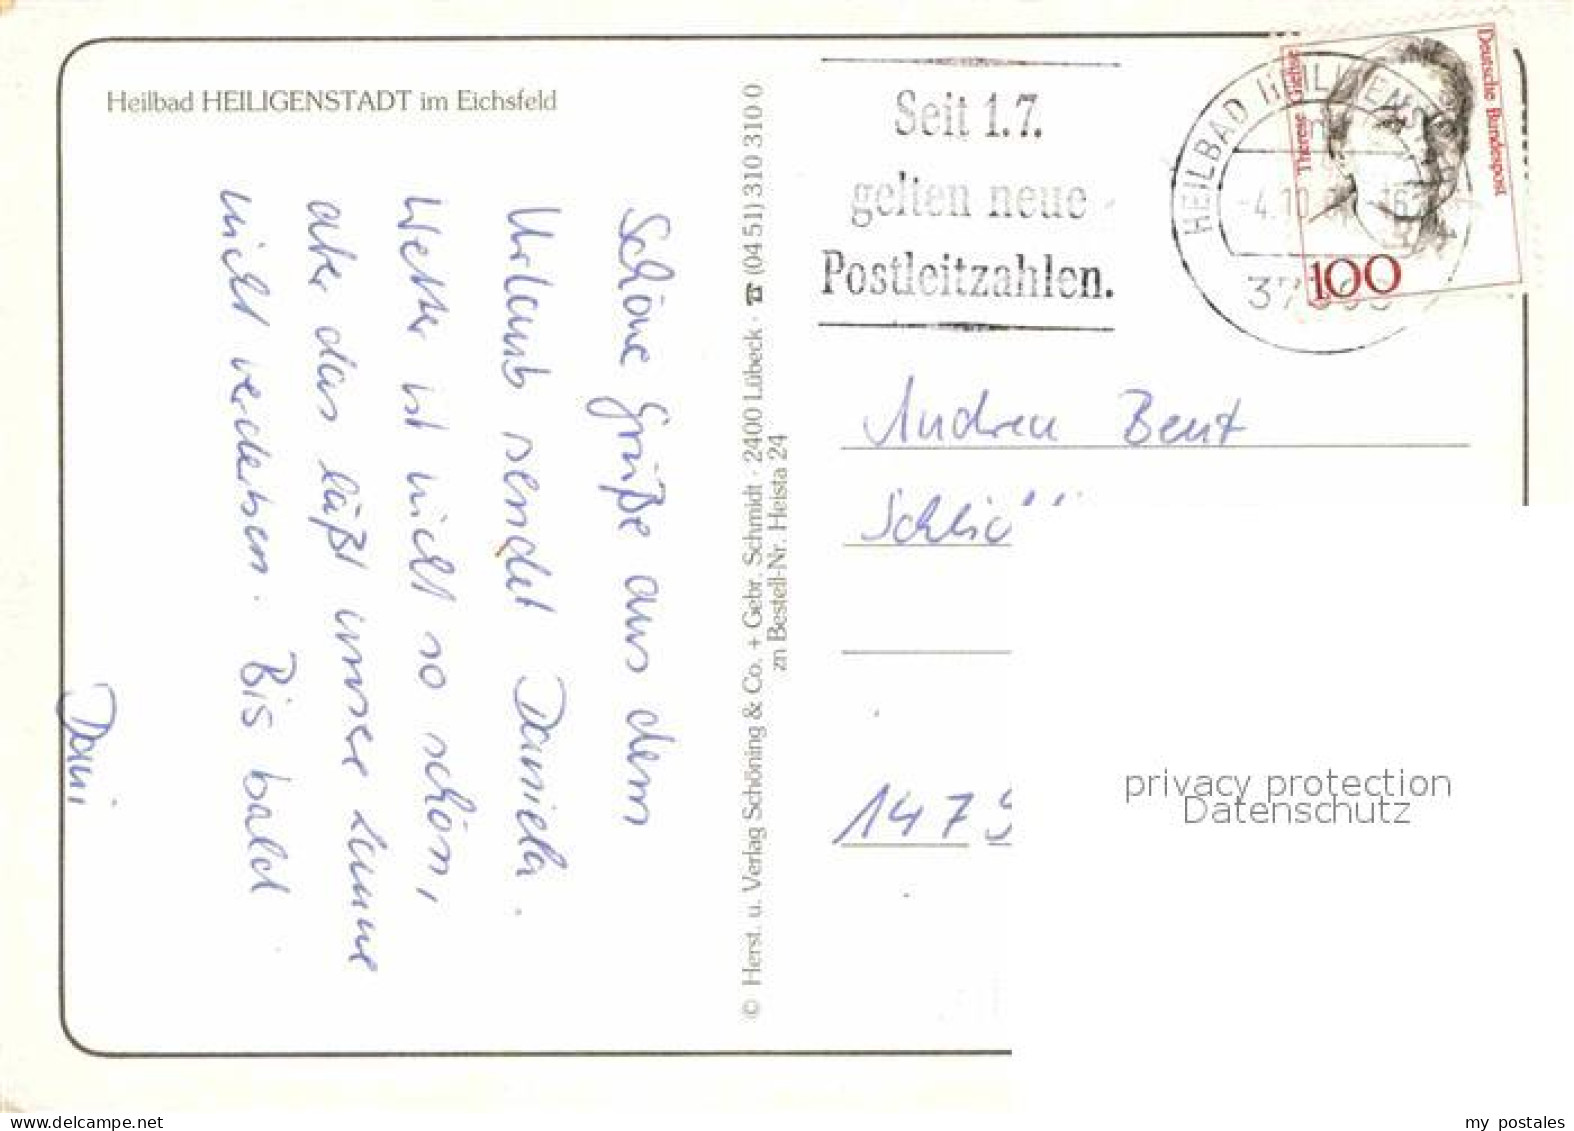 Heilbad HEILIGENSTADT im Eichsfeld
Schöne Grüße aus dem
Urlaub sendet Daniela.
Wetter ist nicht so schön,
aber das läßt unsere Laune
nicht verderben. Bis bald
Dani
© Herst. u. Verlag Schöning & Co. + Gebr. Schmidt · 2400 Lübeck · ☎ (04 51) 310 310 0
zn Bestell-Nr. Heista 24
Seit 1.7.
gelten neue
Postleitzahlen.
HEILBAD HEILIGENS
-4.10. 16
37
Deutsche Bundespost
Therese Giehse
100
Andrea Bent
1479
privacy protection
Datenschutz
delcampe.net
my_postales